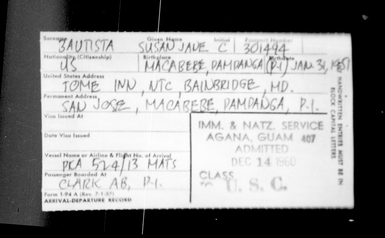 Surname Given Name Initial Passport Number
BAUTISTA SUSAN JANE C 301494
Nationality (Citizenship) Birthplace Birthdate
US MACABEBE, PAMPANGA (P.I.) JAN 31,
United States Address
TOME INN, NTC, BAINBRIDGE, MD.
Permanent Address
SAN JOSE, MACABEBE, PAMPANGA, P.I.
Visa Issued At
Date Visa Issued
Vessel Name or Airline & Flight No. of Arrival
524/13 MATS
Passenger Boarded At
CLARK AB, P.I.
Form I-94 A (Rev. 7-1-57)
ARRIVAL-DEPARTURE RECORD
IMM. & NATZ. SERVICE
AGANA, GUAM 407
ADMITTED
DEC 14 1960
CLASS
U. S. C.
HANDWRITTEN ENTRIES MUST BE IN
BLOCK CAPITAL LETTERS